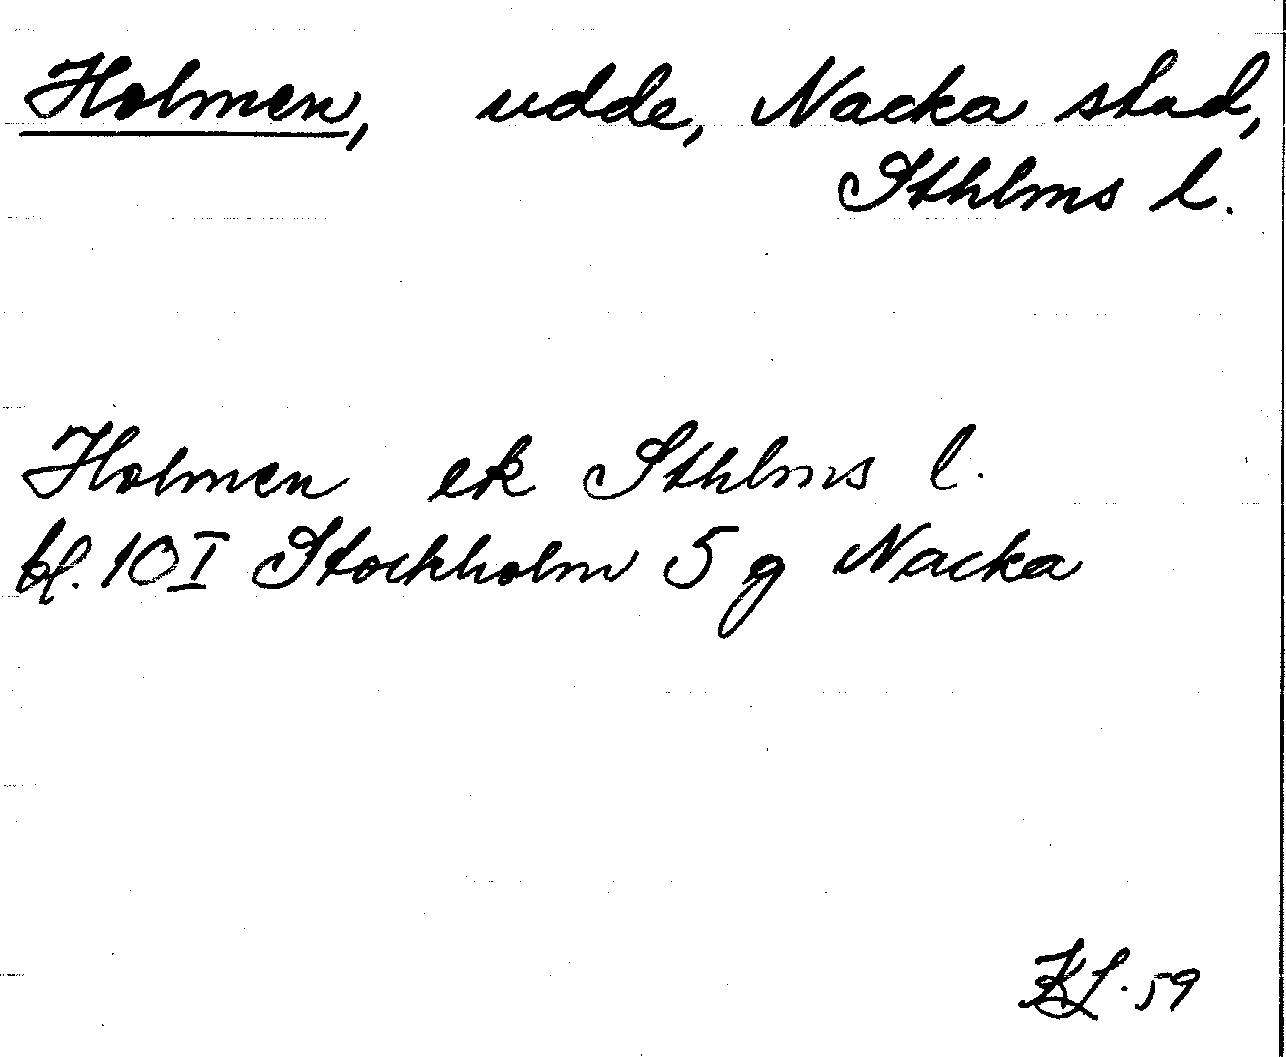 Holmen, udde, Nacka stad,
Sthlms l.
Holmen ek Sthlms l.
bl. 10 I Stockholm 5 g Nacka
59